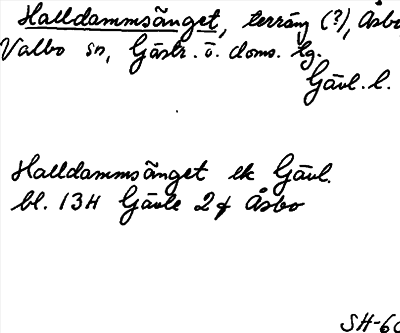 Halldammsänget, terräng (?), Åsbo
Valbo sn, Gästr. ö. doms. tg.
Gävl. l.
Halldammsänget ek Gävl.
bl. 13H Gävle 2f Åsbo
SH-60